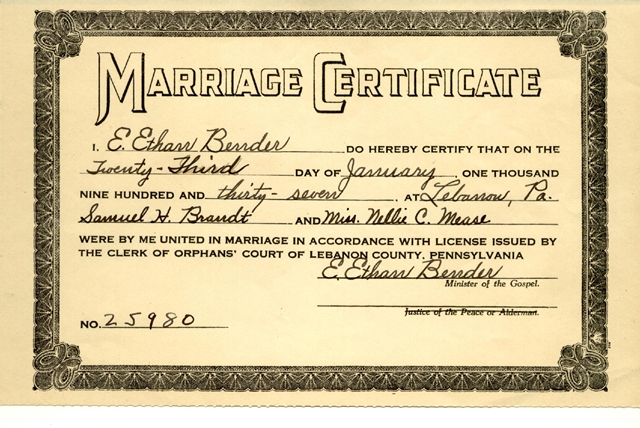 MARRIAGE CERTIFICATE
I, E. Ethan Bender DO HEREBY CERTIFY THAT ON THE
Twenty-Third DAY OF January, ONE THOUSAND
NINE HUNDRED AND thirty-seven AT Lebanon, Pa.
Samuel H. Brandt AND Miss. Nellie C. Mease
WERE BY ME UNITED IN MARRIAGE IN ACCORDANCE WITH LICENSE ISSUED BY
THE CLERK OF ORPHANS' COURT OF LEBANON COUNTY, PENNSYLVANIA
E. Ethan Bender
Minister of the Gospel.
Justice of the Peace or Alderman.
NO. 25980